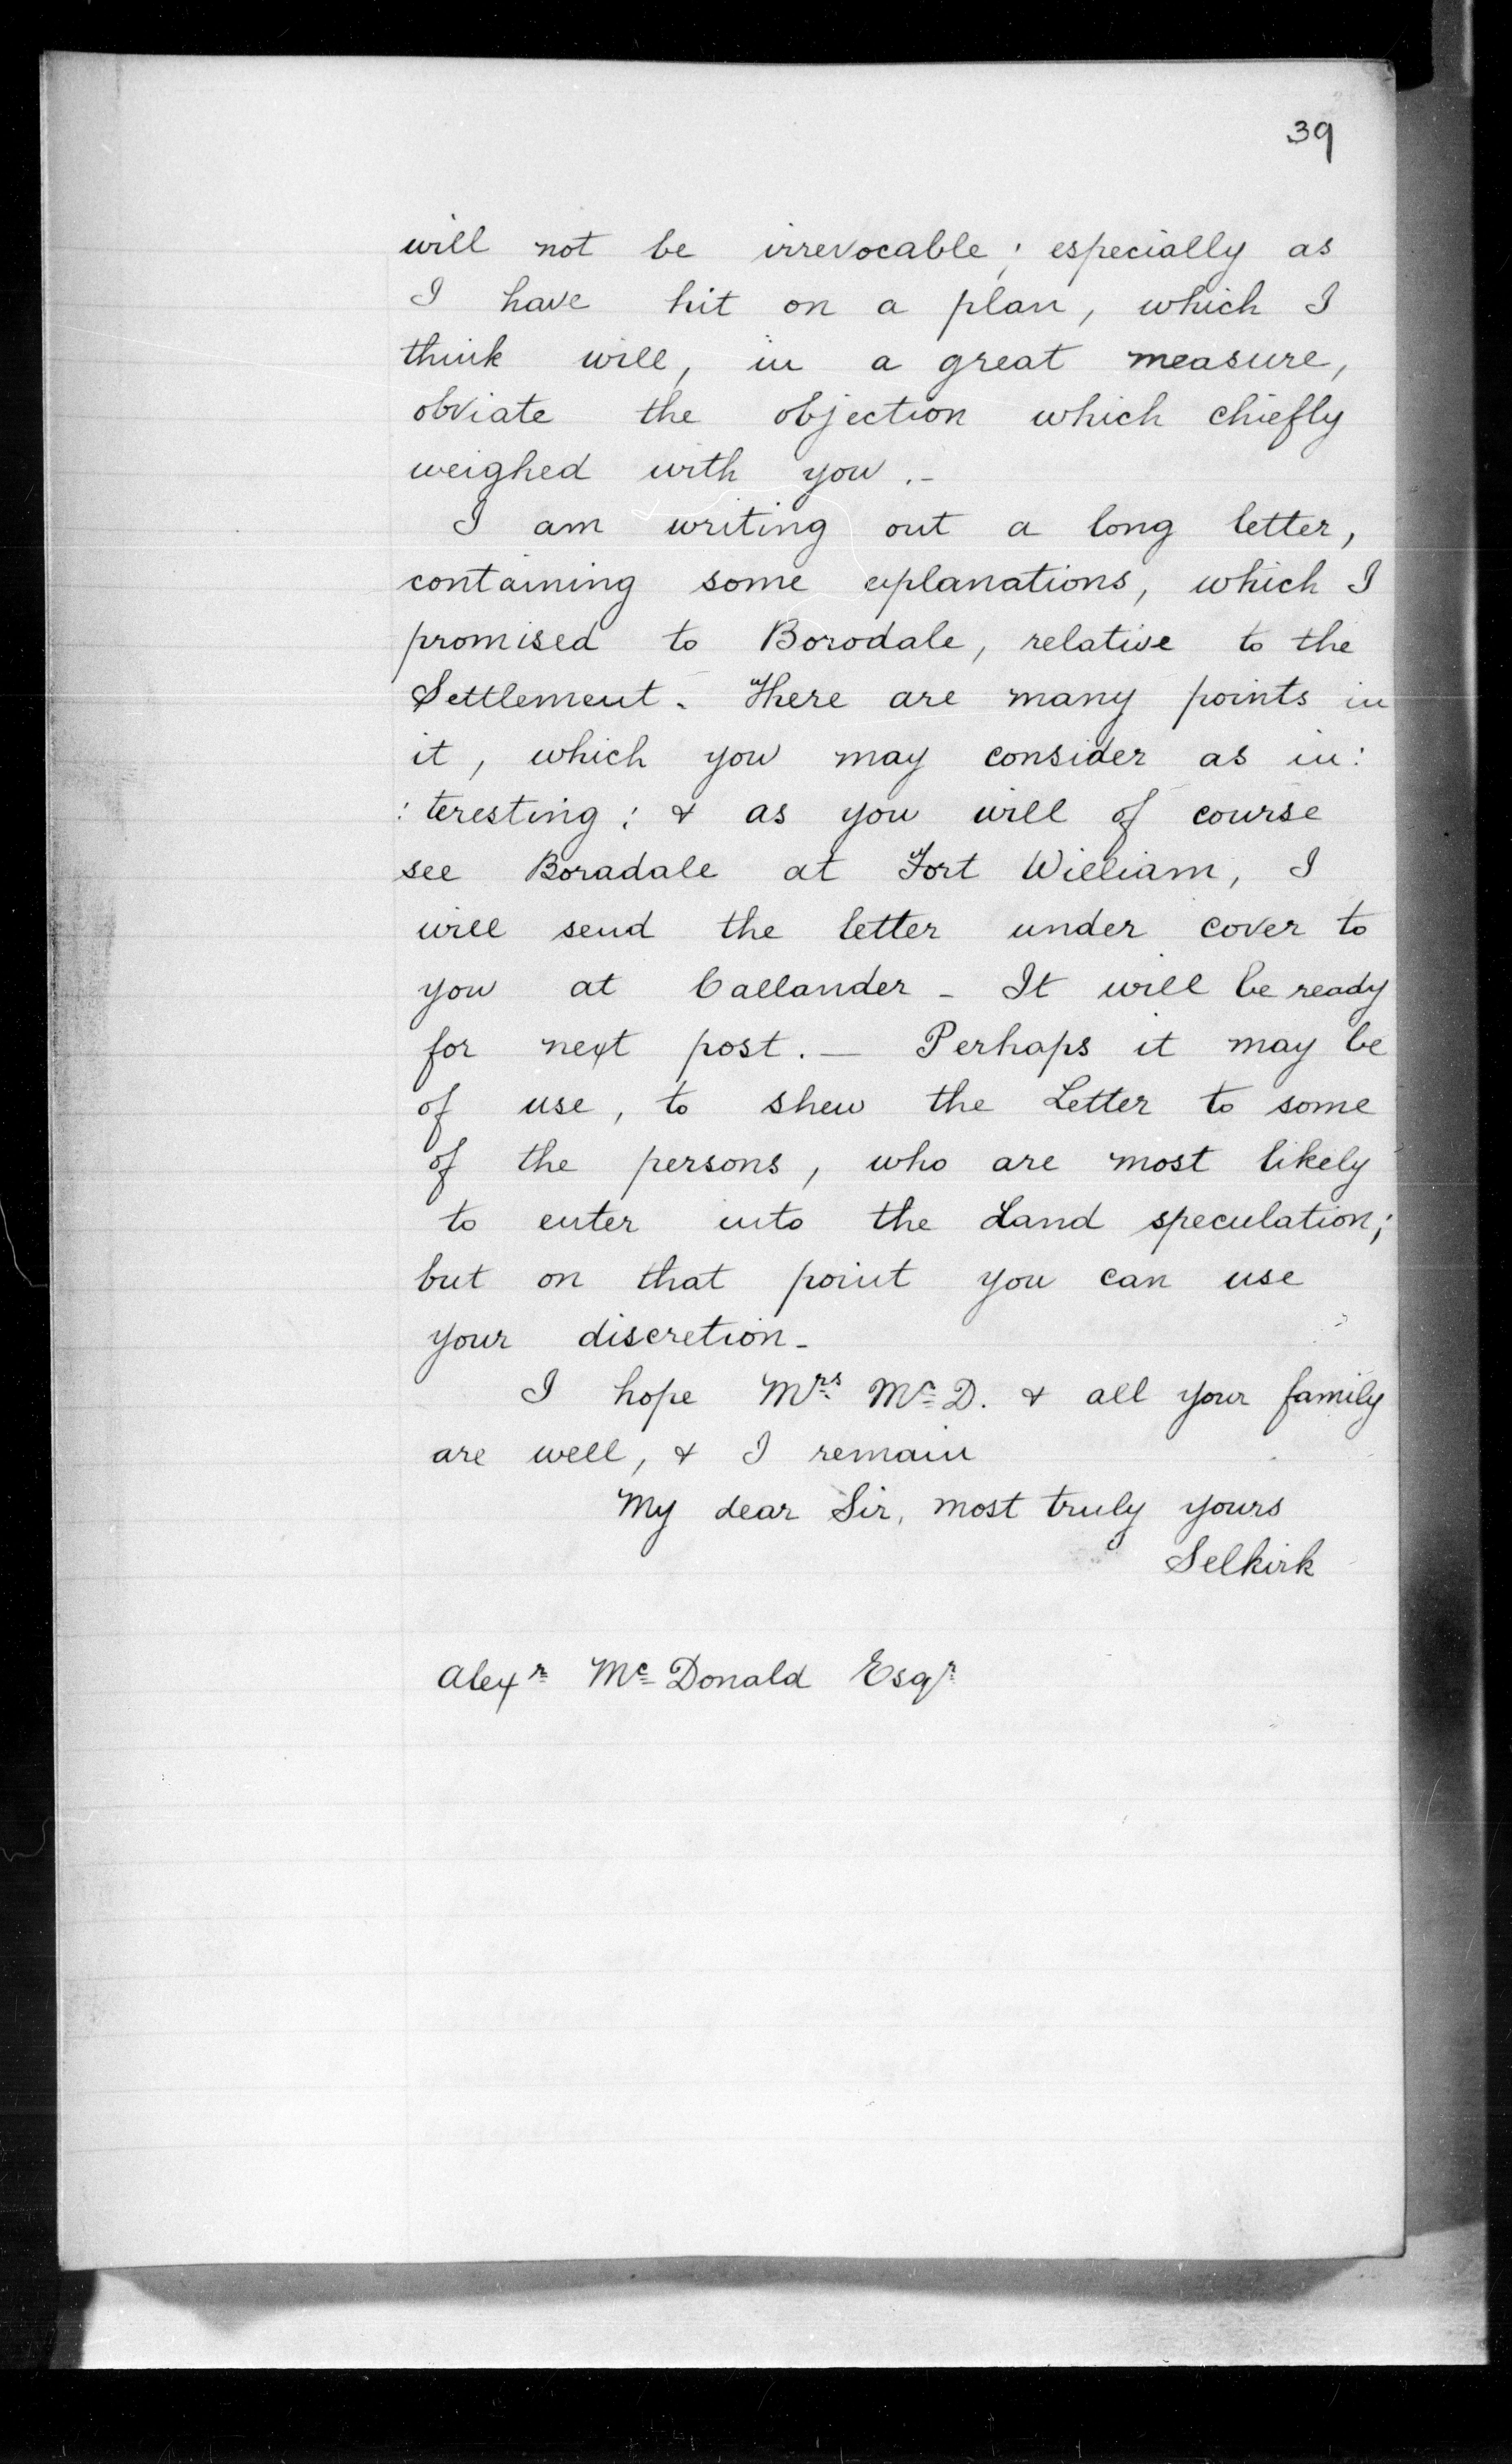 39
will not be irrevocable; especially as
I have hit on a plan, which I
think will, in a great measure,
obviate the objection which chiefly
weighed with you.-
I am writing out a long letter,
containing some explanations, which I
promised to Borodale, relative to the
Settlement. There are many points in
it, which you may consider as in:
:teresting; & as you will of course
see Boradale at Fort William, I
will send the letter under cover to
you at Callander - It will be ready
for next post. — Perhaps it may be
of use, to shew the Letter to some
of the persons, who are most likely
to enter into the Land speculation;
but on that point you can use
your discretion -
I hope Mrs McD. & all your family
are well, & I remain
My dear Sir, most truly yours
Selkirk
Alexr McDonald Esqr